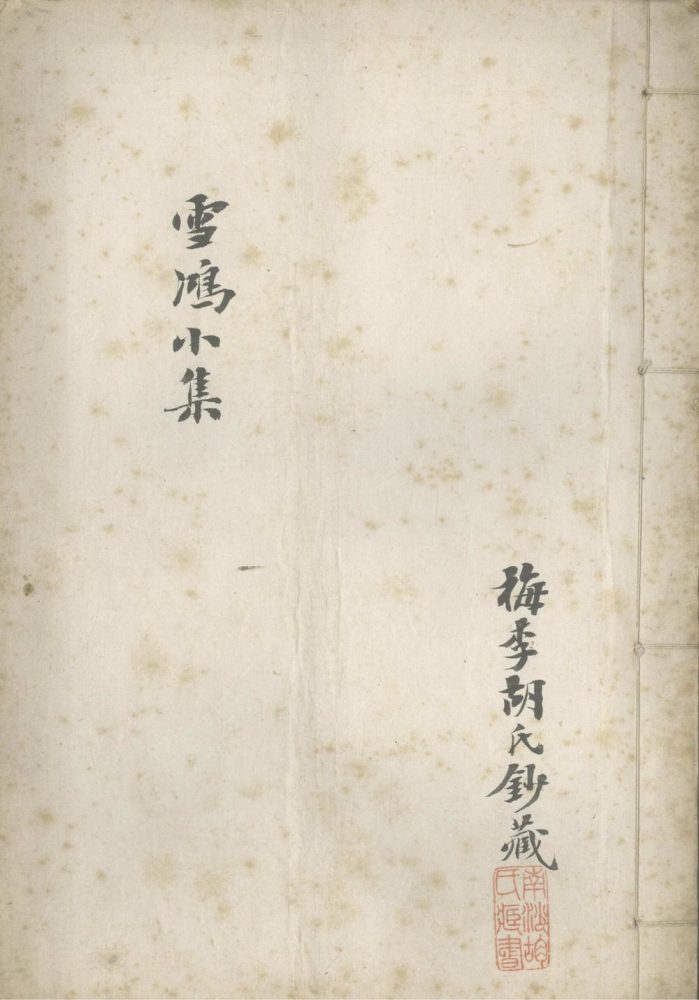 梅季胡氏鈔藏
南海胡
氏書
雪鴻小集